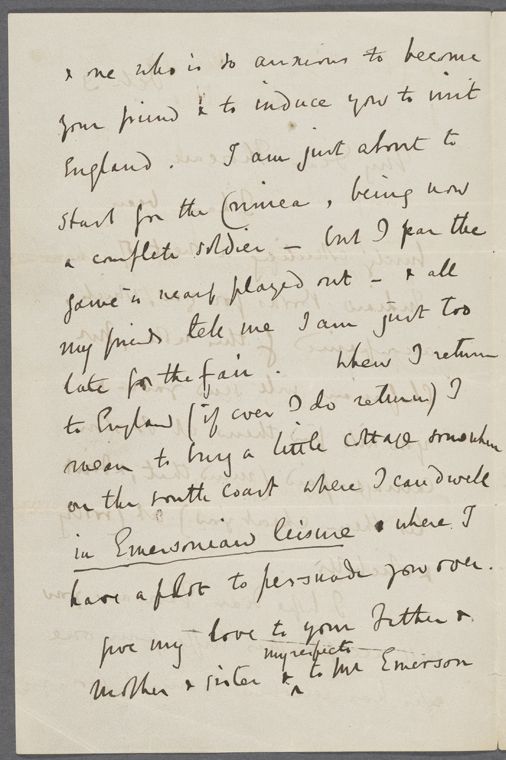 & one who is so anxious to become
your friend & to induce you to visit
England. I am just about to
start for the Crimea, being now
a complete soldier — but I fear the
game is nearly played out — & all
my friends tell me I am just too
late for the fair. When I return
to England (if ever I do return) I
mean to buy a little cottage somewhere
on the south coast where I can dwell
in Emersonian leisure & where I
have a plot to persuade you over.
Give my love to your Father &
my respects
Mother & sister & ^ to Mr Emerson